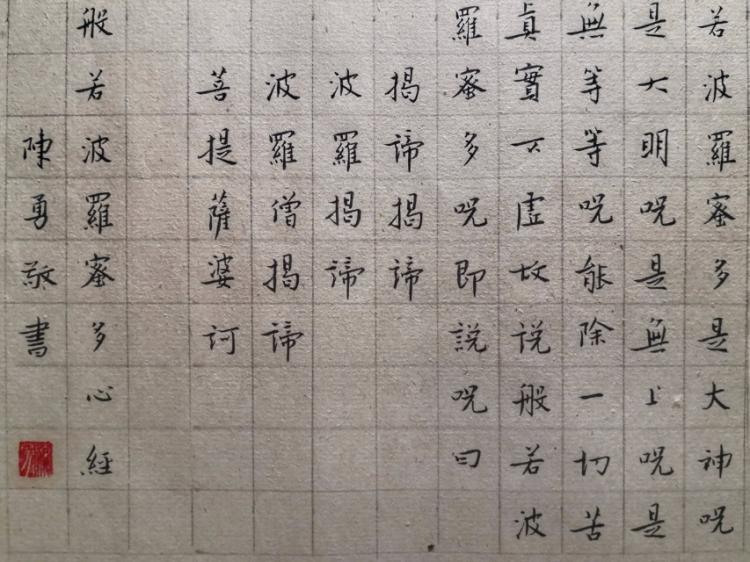 若波羅蜜多是大神呪
是大明呪是無上呪是
無等等呪能除一切苦
真實不虛故說般若波
羅蜜多呪即說呪曰
揭諦揭諦
波羅揭諦
波羅僧揭諦
菩提薩婆訶
般若波羅蜜多心經
陳勇敬書